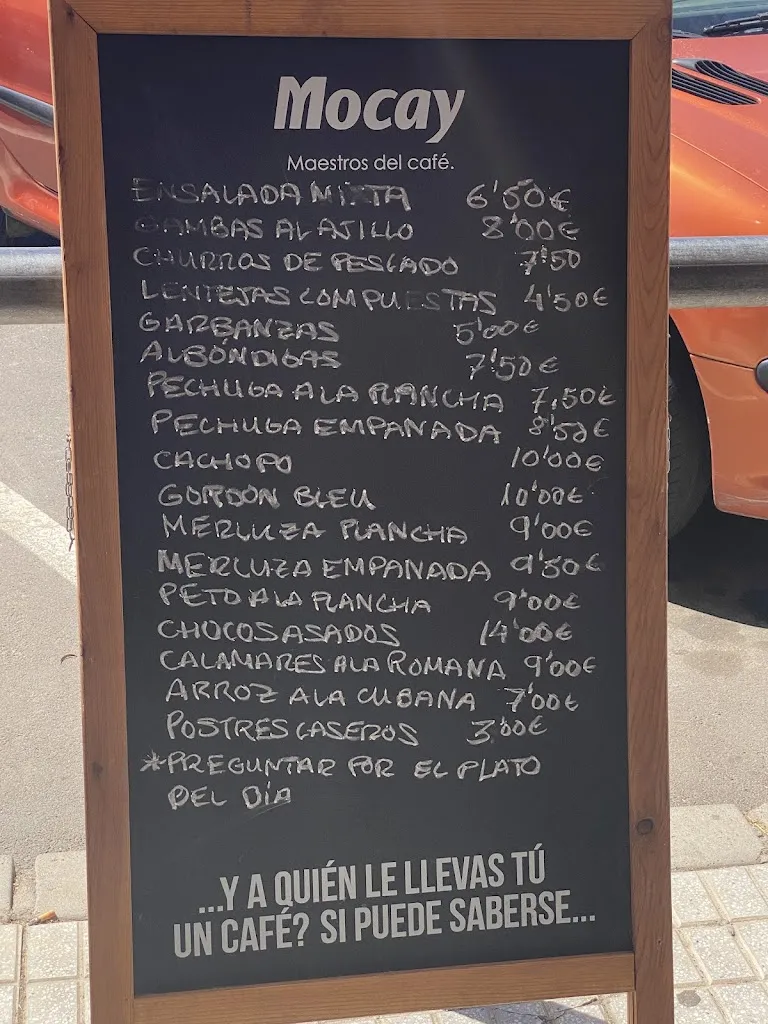 Mocay
Maestros del café.
ENSALADA MIXTA 6'50€
GAMBAS AL AJILLO 8'00€
CHURROS DE PESCADO 7'50
LENTEJAS COMPUESTAS 4'50€
GARBANZAS 5'00€
ALBÓNDIGAS 7'50€
PECHUGA A LA PLANCHA 7,50€
PECHUGA EMPANADA 8'50€
CACHOPO 10'00€
GORDON BLEU 10'00€
MERLUZA PLANCHA 9'00€
MERLUZA EMPANADA 9'50€
PETO A LA PLANCHA 9'00€
CHOCOS ASADOS 14'00€
CALAMARES A LA ROMANA 9'00€
ARROZ A LA CUBANA 7'00€
POSTRES CASEROS 3'00€
*PREGUNTAR POR EL PLATO
DEL DÍA
...Y A QUIÉN LE LLEVAS TÚ
UN CAFÉ? SI PUEDE SABERSE...